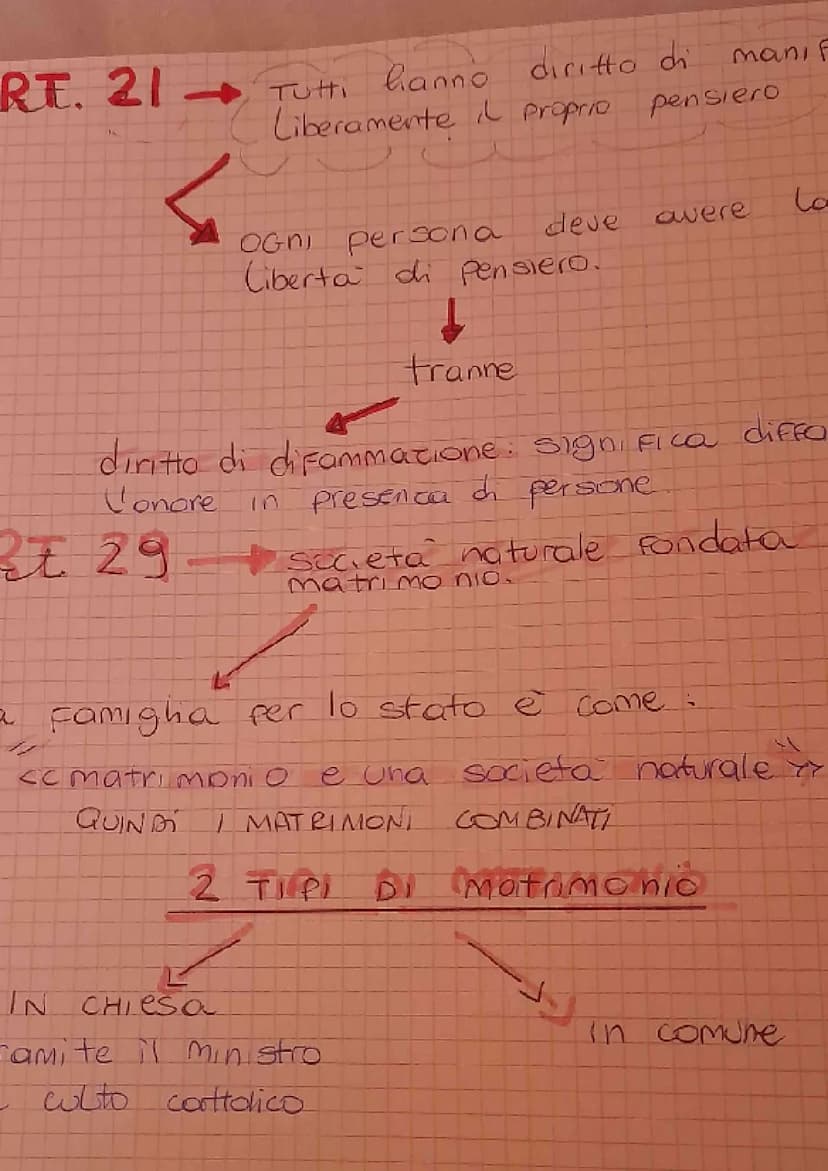 RT. 21 → Tutti hanno diritto di manif
liberamente il proprio pensiero
OGNI persona deve avere la
libertà di pensiero.
tranne
diritto di diffammazione: significa diffa
l'onore in presenza di persone
RT. 29 → società naturale fondata
matrimonio.
a famiglia per lo stato è come :
<< matrimonio e una società naturale >>
QUINDI I MATRIMONI COMBINATI
2 TIPI DI matrimonio
IN CHIESA
in comune
ramite il ministro
culto cattolico